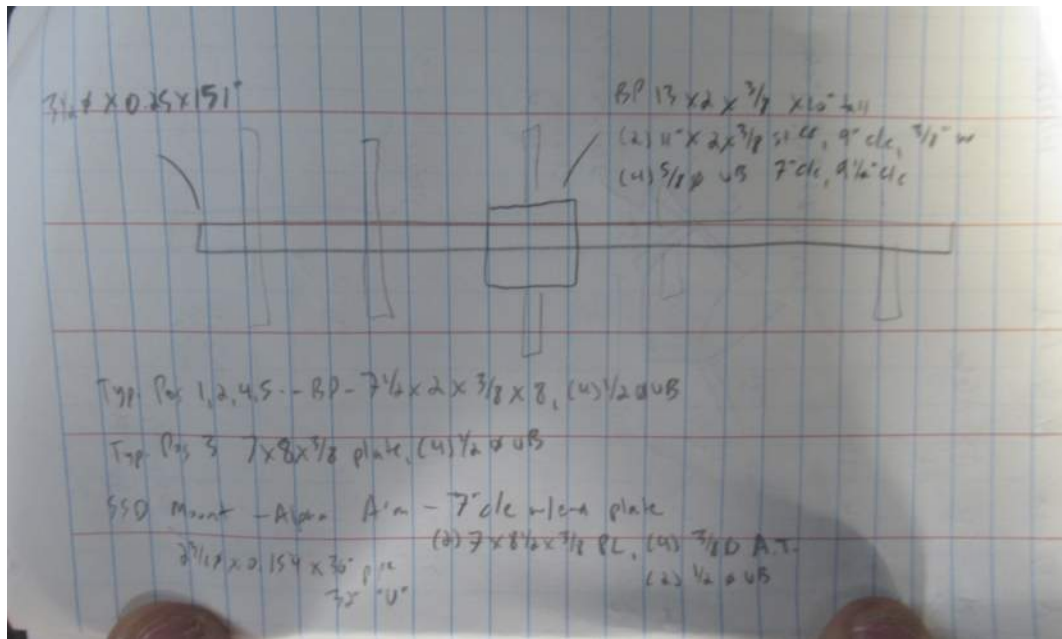 3 1/2 ϕ X 0.25 X 151"
BP 13 x 2 x 3/8 x 10"
(2) 11" x 2 x 3/8 9" c/c, 3/8"
(4) 5/8 ϕ UB 7" c/c, 9 1/2" c/c
Typ. Pos 1,2,4,5 -- BP - 7 1/2 x 2 x 3/8 x 8, (4) 1/2 ϕ UB
Typ. Pos 3 7x8x3/8 plate, (4) 1/2 ϕ UB
SSD Mount - Alpha Arm - 7" c/c w/end plate
(2) 7 x 8 1/2 x 3/8 PL, (4) 3/8 D A.T.
x 0.154 x 36" pipe
(2) 1/2 ϕ UB
"U"